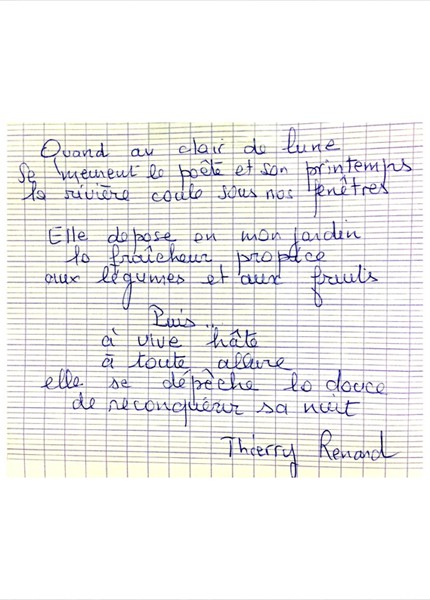 Quand au clair de lune
se meuvent le poète et son printemps
la rivière coule sous nos fenêtres
Elle dépose en mon jardin
la fraîcheur propice
aux légumes et aux fruits
Puis...
à vive hâte
à toute allure
elle se dépêche la douce
de reconquérir sa nuit
Thierry Renard